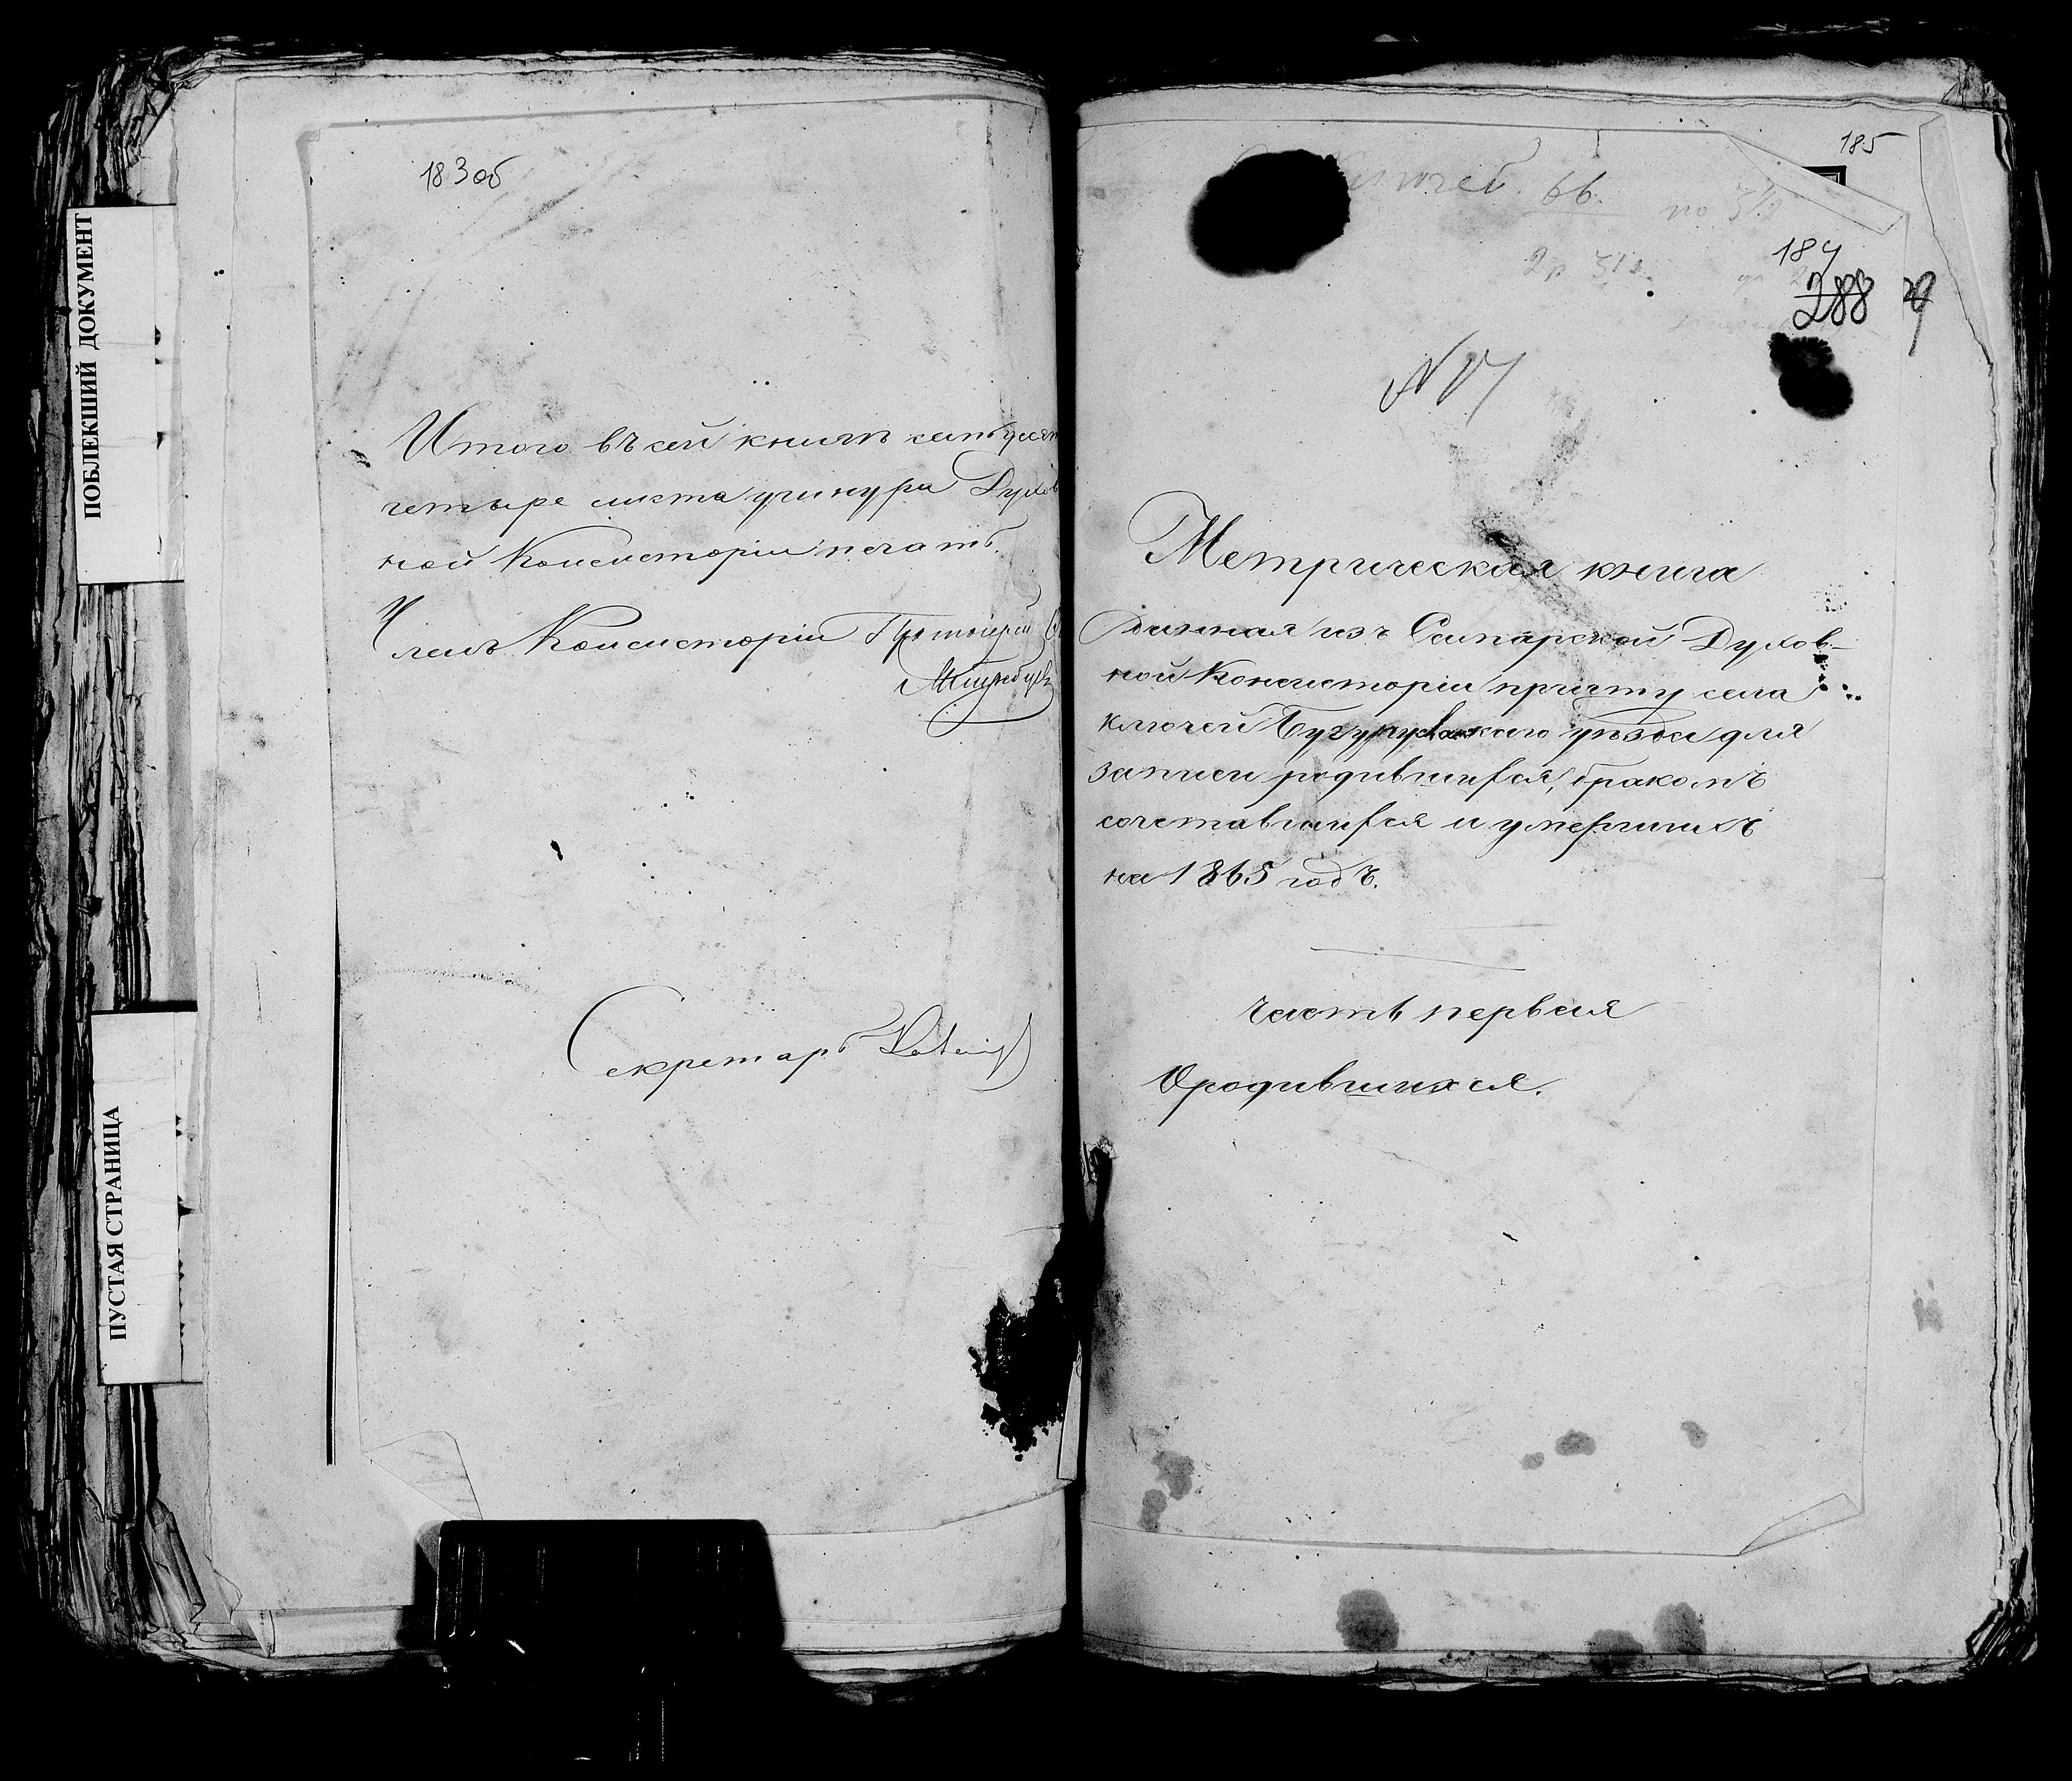 ПОБЛЕКШИЙ ДОКУМЕНТ
ПУСТАЯ СТРАНИЦА
183об
Итого въ сей книгѣ
четыре листа у шнура Духов
ной Консисторіи печать.
Членъ Консисторіи Протоіерей
Секретарь
185
66.
по
2р
184
288
№
Метрическая книга
Данная изъ Самарской Духов-
ной Консисторіи причту села
Ключей Бугурусланскаго уѣзда для
записи родившихся, бракомъ
сочетавшихся и умершихъ
на 1865 годъ.
Часть первая
О родившихся.